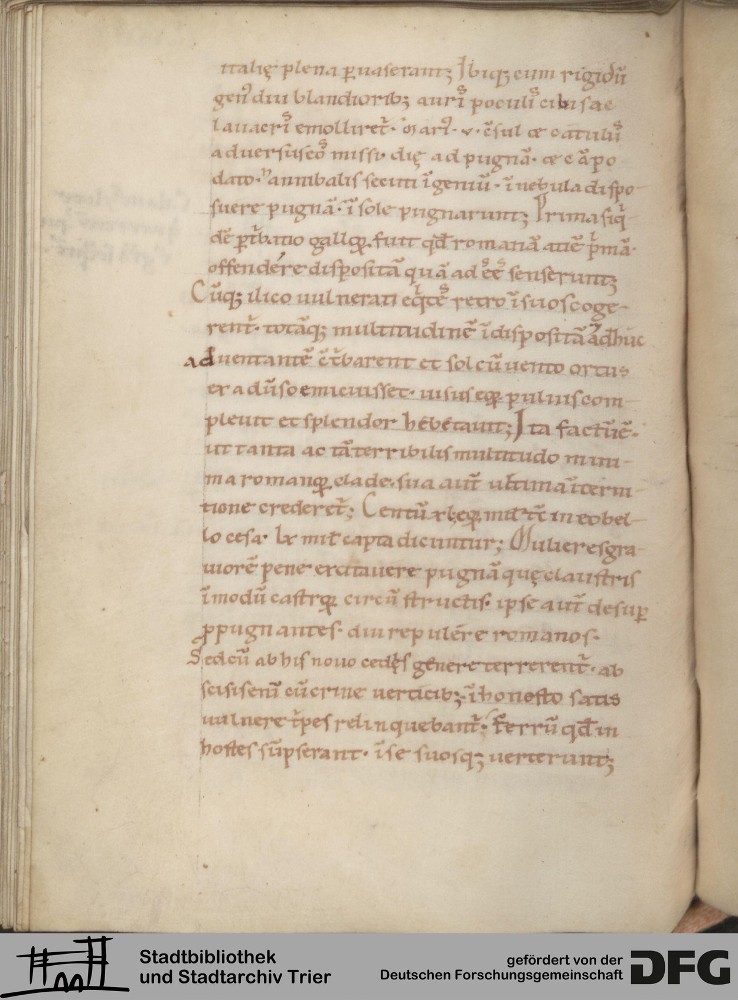 italię plena ꝑuaserant; Ibiq; cum rigidū
gen᷒ diu blandiorib; auri᷒ poculi᷒ cibis ac
lauacri᷒ emolliret᷑· Mari᷒· v· c̄sul et catulu᷒
aduersus eo᷒ missi· die ad pugnā· et cāpo
dato· hannibalis secuti īgeniū· ī nebula dispo-
suere pugnā· ī sole pugnarunt; Prima siqͥ-
dē ꝑt͛batio galloꝝ fuit qd̄ romanā aciē pͥmā·
offendere dispositā quā ad eē᷒ senserunt;
Cūq; ilico uulnerati eqͥte᷒ retro ī suos coge-
rent᷑· totāq; multitudinē īdisposita adhuc
aduentantē c̄t͛barent et sol cū uento ortus
ex adu͛so emicuisset· uisus eoꝝ puluis com-
pleuit et splendor hebetauit; Ita factū ē·
ut tanta ac tā terribilis multitudo mini-
ma romanoꝝ clade· sua aut̄ ultima īterni-
tione crederet᷑; Centū xl eoꝝ mil̄ t̄c in eo bel-
lo cesa· lx mil̄ capta dicuntur; Mulieres gra-
uiorē pene excitauere pugnā quę claustris
ī modū castroꝝ circū structis· ipse aut̄ desuꝑ
ꝓpugnantes· diu repulere romanos·
Sed cū ab his nouo cedis genere terrerent᷑· ab
scisis eni᷑ cū crine uerticib;· īhonesto satis
uulnere t᷑pes relinquebant᷑; ferrū qd̄ in
hostes sūpserant· ī se suosq; uerterunt;
Stadtbibliothek
und Stadtarchiv Trier
gefördert von der
Deutschen Forschungsgemeinschaft
DFG